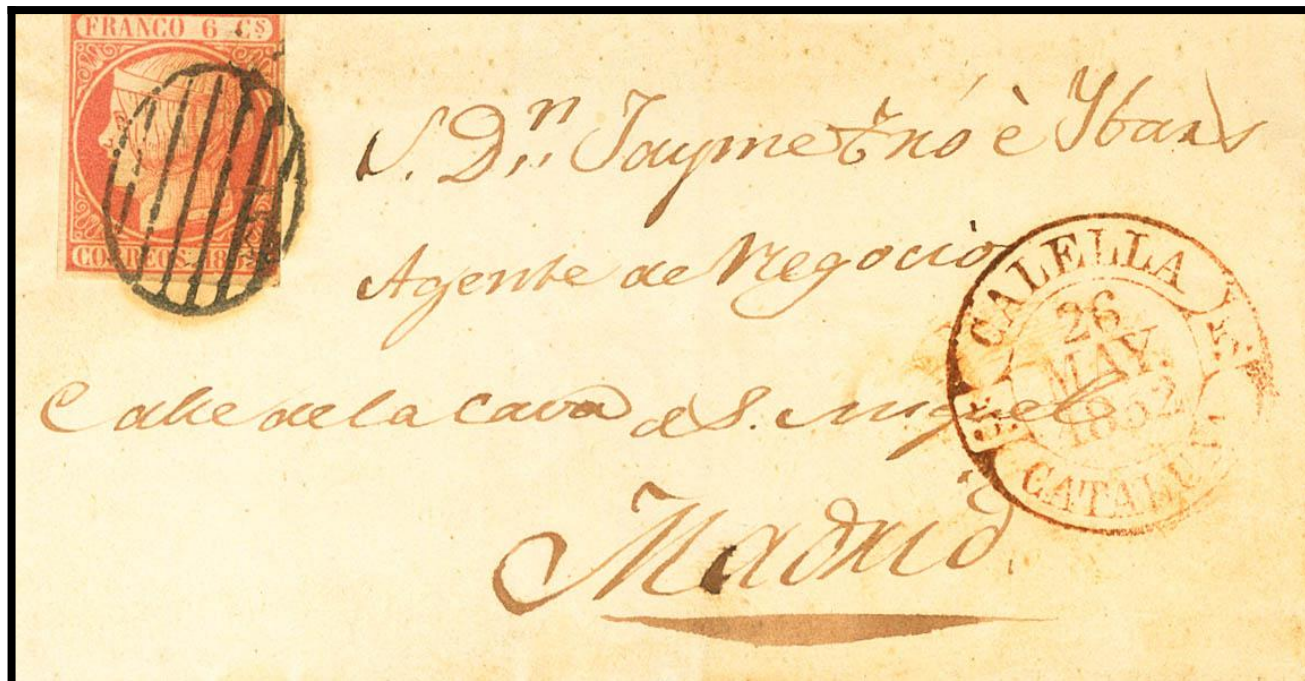 FRANCO 6 Cs
CORREOS. 185
S. Dn. Jayme è Ybars
Agente de Negocios
Calle de la Cava de S. Miguel
Madrid
CALELLA
26
MAY.
1852
CATALUÑA